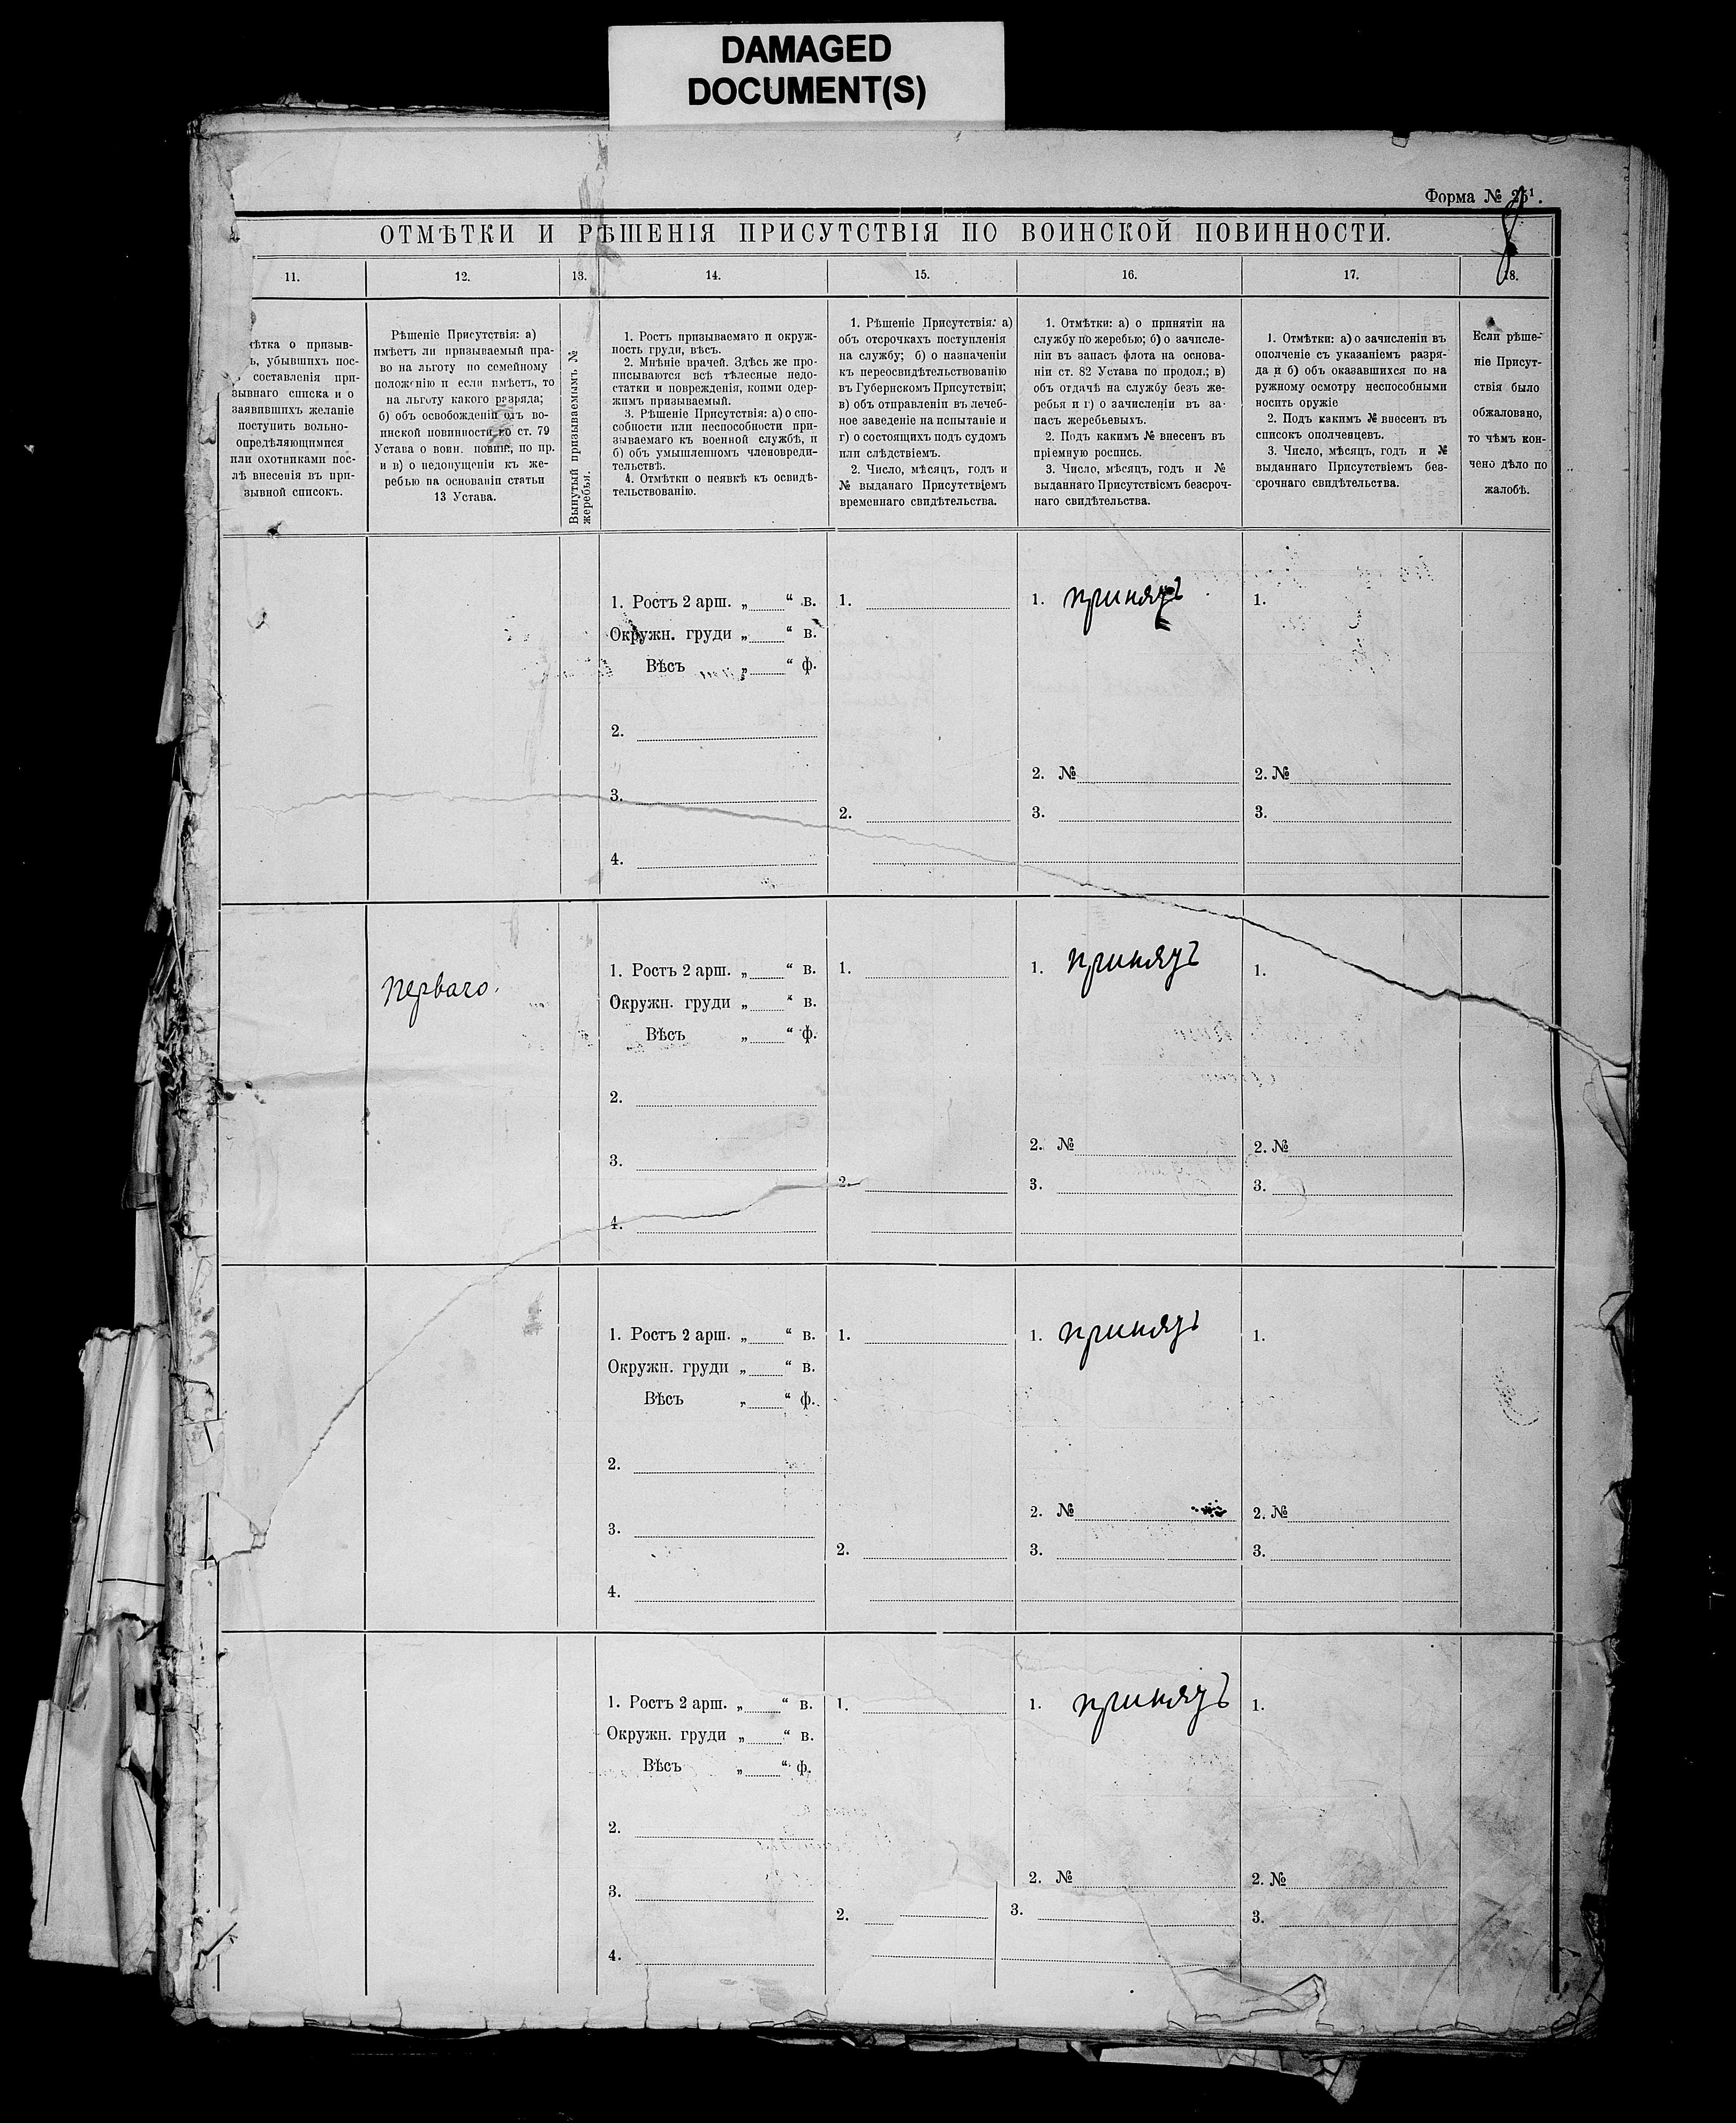 DAMAGED
DOCUMENT(S)
Форма № 25¹.
8
ОТМѢТКИ И РѢШЕНІЯ ПРИСУТСТВІЯ ПО ВОИНСКОЙ ПОВИННОСТИ.
11. 12. 13. 14. 15. 16. 17. 18.
мѣтка о призыв-
ъ, убывшихъ пос-
составленія при-
зывнаго списка и о
заявившихъ желаніе
поступить вольно-
опредѣляющимися
или охотниками пос-
лѣ внесенія въ при-
зывной списокъ.
Рѣшеніе Присутствія: а)
имѣетъ ли призываемый пра-
во на льготу по семейному
положенію и если имѣетъ, то
на льготу какого разряда;
б) объ освобожденіи отъ во-
инской повинности по ст. 79
Устава о воин. повин., по пр.
и в) о недопущеніи къ же-
ребью на основаніи статьи
13 Устава.
Вынутый призываемымъ №
жеребья.
1. Ростъ призываемаго и окруж-
ность груди, вѣсъ.
2. Мнѣніе врачей. Здѣсь же про-
писываются всѣ тѣлесные недо-
статки и поврежденія, коими одер-
жимъ призываемый.
3. Рѣшеніе Присутствія: а) о спо-
собности или неспособности при-
зываемаго къ военной службѣ, и
б) объ умышленномъ членовреди-
тельствѣ.
4. Отмѣтки о неявкѣ къ освидѣ-
тельствованію.
1. Рѣшеніе Присутствія: а)
объ отсрочкахъ поступленія
на службу; б) о назначеніи
къ переосвидѣтельствованію
въ Губернскомъ Присутствіи;
в) объ отправленіи въ лечеб-
ное заведеніе на испытаніе и
г) о состоящихъ подъ судомъ
или слѣдствіемъ.
2. Число, мѣсяцъ, годъ и
№ выданаго Присутствіемъ
временнаго свидѣтельства.
1. Отмѣтки: а) о принятіи на
службу по жеребью; б) о зачисле-
ніи въ запасъ флота на основа-
ніи ст. 82 Устава по продол.; в)
объ отдачѣ на службу безъ же-
ребья и г) о зачисленіи въ за-
пасъ жеребьевыхъ.
2. Подъ какимъ № внесенъ въ
пріемную роспись.
3. Число, мѣсяцъ, годъ и №
выданнаго Присутствіемъ безсроч-
наго свидѣтельства.
1. Отмѣтки: а) о зачисленіи въ
ополченіе съ указаніемъ разря-
да и б) объ оказавшихся по на
ружному осмотру неспособными
носить оружіе
2. Подъ какимъ № внесенъ въ
списокъ ополченцевъ.
3. Число, мѣсяцъ, годъ и №
выданнаго Присутствіемъ без-
срочнаго свидѣтельства.
Если рѣше-
ніе Присут-
ствія было
обжаловано,
то чѣмъ кон-
чено дѣло по
жалобѣ.
1. Ростъ 2 арш. „ “ в. 1. 1. принятъ 1.
Окружн. груди „ “ в.
Вѣсъ „ “ ф.
2.
2. № 2. №
3.
2. 3. 3.
4.
перваго.
1. Ростъ 2 арш. „ “ в. 1. 1. принятъ 1.
Окружн. груди „ “ в.
Вѣсъ „ “ ф.
2.
2. № 2. №
3.
2. 3. 3.
4.
1. Ростъ 2 арш. „ “ в. 1. 1. принятъ 1.
Окружн. груди „ “ в.
Вѣсъ „ “ ф.
2.
2. № 2. №
3.
2. 3. 3.
4.
1. Ростъ 2 арш. „ “ в. 1. 1. принятъ 1.
Окружн. груди „ “ в.
Вѣсъ „ “ ф.
2.
2. № 2. №
3.
2. 3. 3.
4.